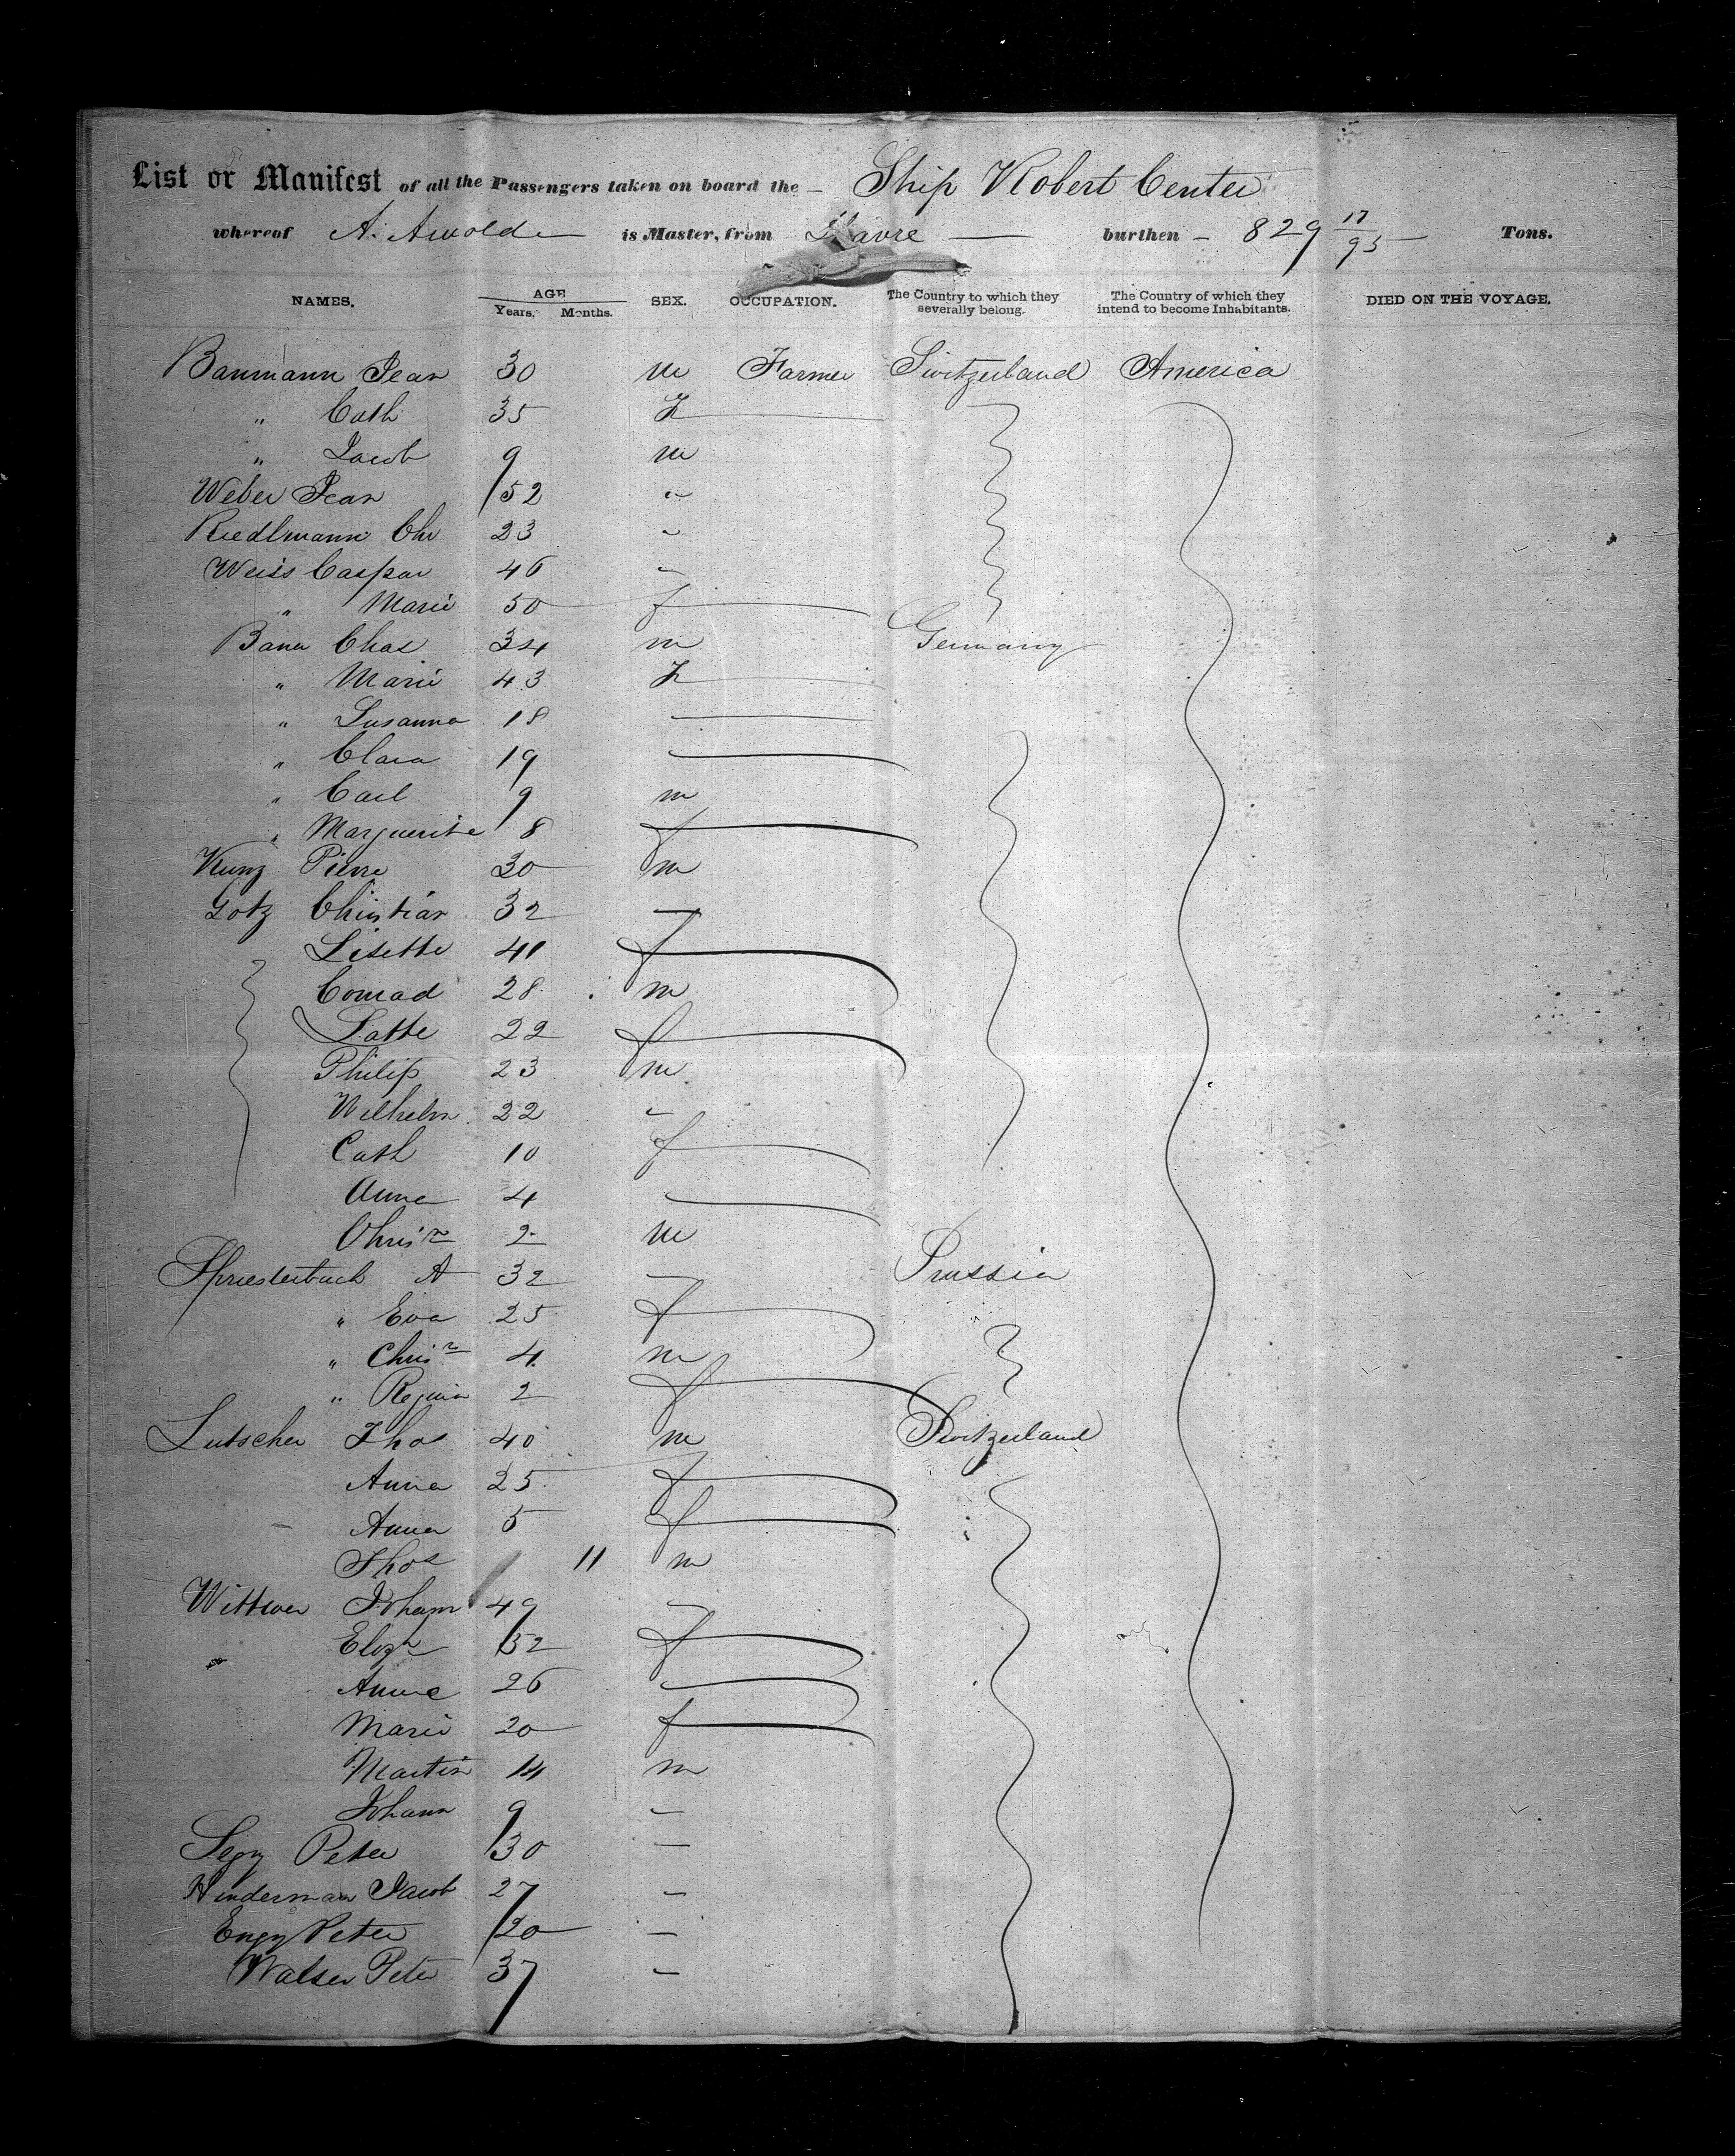 List or Manifest of all the Passengers taken on board the Ship Robert Center
whereof A. Arnold is Master, from Havre burthen 829 17/95 Tons.
NAMES. AGE SEX. OCCUPATION. The Country to which they severally belong. The Country of which they intend to become Inhabitants. DIED ON THE VOYAGE.
Years. Months.
Baumann Jean 30 m Farmer Switzerland America
" Cath 35 f
" Jacob 9 m
Weber Jean 52 "
Riedlmann Chr 23 "
Weiss Caspar 46 "
" Marie 50 f
Bauer Chas 34 m Germany
" Marie 43 f
" Susanna 18
" Clara 19
" Carl 9 m
" Marguerite 8 f
Kunz Pierre 30 m
Gotz Christian 32
Lisette 41 f
Conrad 28 m
22 f
Philip 23 m
Wilhelm 22 "
Cath 10 f
Anna 4
Chrisn 2 m
Spriesterbach A 32 Prussia
" Eva 25 f
" Chrisn 4 m
" Regina 2 f
Lutscher Thos 40 m Switzerland
Anna 25 f
Anna 5 f
Thos 11 m
Wittwer Johann 49
Elizh 52 f
Anna 26
Marie 20 f
Martin 14 m
Johann 9
Peter 30
Hinderman Jacob 27
Peter 20
Walser Peter 37